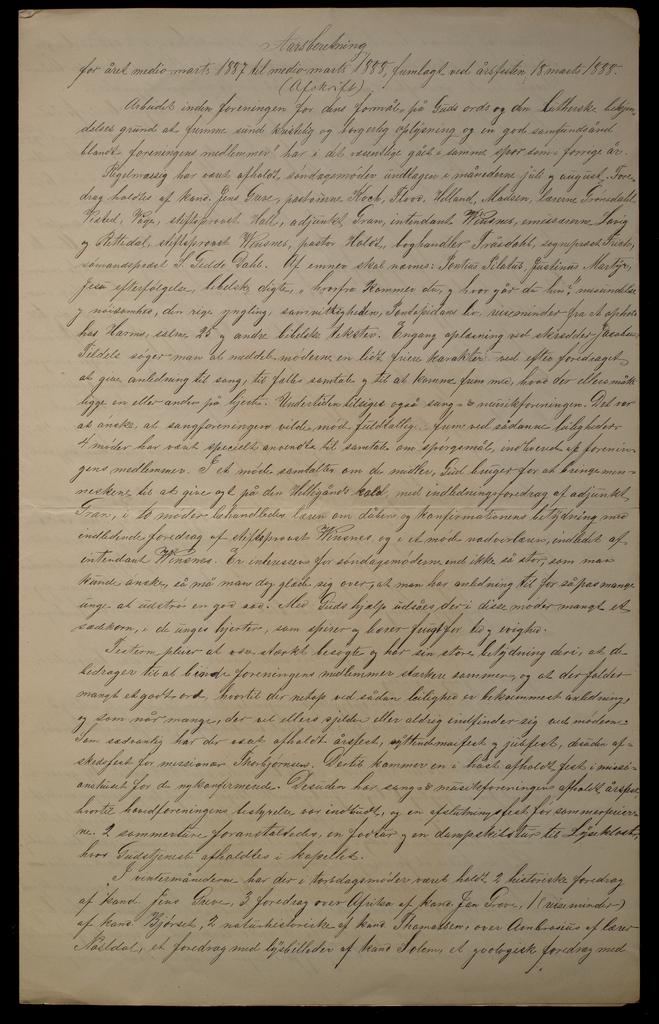 Aarsberetning
for året medio marts 1887 til medio marts 1888, fremlagt ved årsfesten, 18 marts 1888.
(Afskrift)
Arbeidet inden foreningen for dens formål, på Guds ords og den lutherske bekjen-
delses grund at fremme sund kristelig og borgerlig oplysning og en god samfundsånd
blandt foreningens medlemmer har i det væsentlige gået i samme spor som forrige år.
Regelmæssig har været afholdt søndagsmøder undtagen i månederne juli og august. Fore-
drag holdtes af kand. Jens Greve, pastorerne Koch, Floor, Hilland, Madsen, lærerne Grönsdahl,
Visted, Våge, stiftsprovst Hall, adjunkt Gran, intendant Winsnes, emissærerne Lavig
og Hettedal, stiftsprovst Winsnes, pastor Holdt, boghandler Träsdahl, sogneprest Frich,
sömandsprest S. Gedde Dahl. Af emner skal nævnes: Pontius Pilatus, Justinus Martyr,
Jesu efterfølgelse, bibelsk digte, hvorfra kommer du, og hvor går du hen? misundelse
og nöisomhed, den rige yngling, samvittigheden, Pontopidans liv, reiseminder fra et ophold
hos Harms, salme 25 og andre bibelske tekster. Engang oplæsning ved skrædder Jacobsen.
Tildels söger man at meddele møderne en lidt friere karakter ved efter foredraget
at give anledning til sang, til fælles samtale og til at komme frem med, hvad der ellers måtte
ligge en eller anden på hjerte. Undertiden tilsiges også sang- & musikforeningen. Det var
at önske, at sangforeningen vilde möde fuldtallig frem ved sådanne leiligheder.
4 möder har været specielt anvendte til samtale om spörgsmål, indleverede af forenin-
gens medlemmer. I et møde samtaltes om de midler, Gud bruger for at bringe men-
neskene til at give agt på den Helligånds kald, med indledningsforedrag af adjunkt
Gran, i to møder behandledes læren om dåben og konfirmationens betydning med
indledende foredrag af stiftsprovst Winsnes og i et møde nadverlæren, indledet af
intendant Winsnes. Er interessen for søndagsmøderne end ikke så stor, som man
kunde ønske, så må man dog glæde sig over, at man har anledning til for så pas mange
unge at udströ en god sæd. Med Guds hjælp udsåes der i disse møder mangt et
sædekorn, i de unges hjerter, som spirer og bærer frugt for tid og evighed.
Festerne pleier at være stærkt besøgte og har sin store betydning deri, at de
bidrager til at binde foreningens medlemmer stærkere sammen, og at der falder
mangt et godt ord, hvortil der netop ved sådan leilighed er bekvemmest anledning,
og som når mange, der vel ellers sjelden eller aldrig indfinder sig ved møderne.
Som sædvanlig har der været afholdt årsfest, syttendemaifest og julefest, desuden af-
skedsfest for missionær Thorbjørnsen. Dertil kommer en i höst afholdt fest i missi-
onshuset for de nykonfirmerede. Desuden har sang- & musikforeningen afholdt årsfest,
hvortil hovedforeningens bestyrelse var indbudt, og en afslutningsfest før sommerferier-
ne. 2 sommerture foranstaltedes, en fodtur og en dampskibstur til Lysekloster,
hvor Gudstjeneste afholdtes i kapellet.
I vintermånederne har der i torsdagsmøder været holdt 2 historiske foredrag
af kand. Jens Greve, 3 foredrag over Afrika af kand. Jan Greve, 1 (reiseminder)
af kand. Bjørset, 2 naturhistoriske af kand. Thomassen, over Ambrosius af lærer
Näsdal, et foredrag med lysbilleder af kand. Solem, et geologisk foredrag med